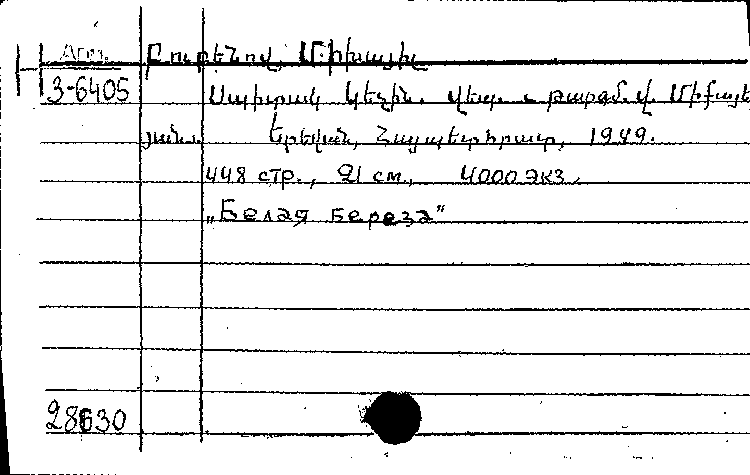 Բուբենով Միխայիլ
3-6405 Սպիտակ կեչին. վեպ. Թարգմ. վ. Միքայե
յան. Երեվան, Հայպետհրատ, 1949.
448 стр., 21 см., 4000 экз.
„Белая береза“
28630